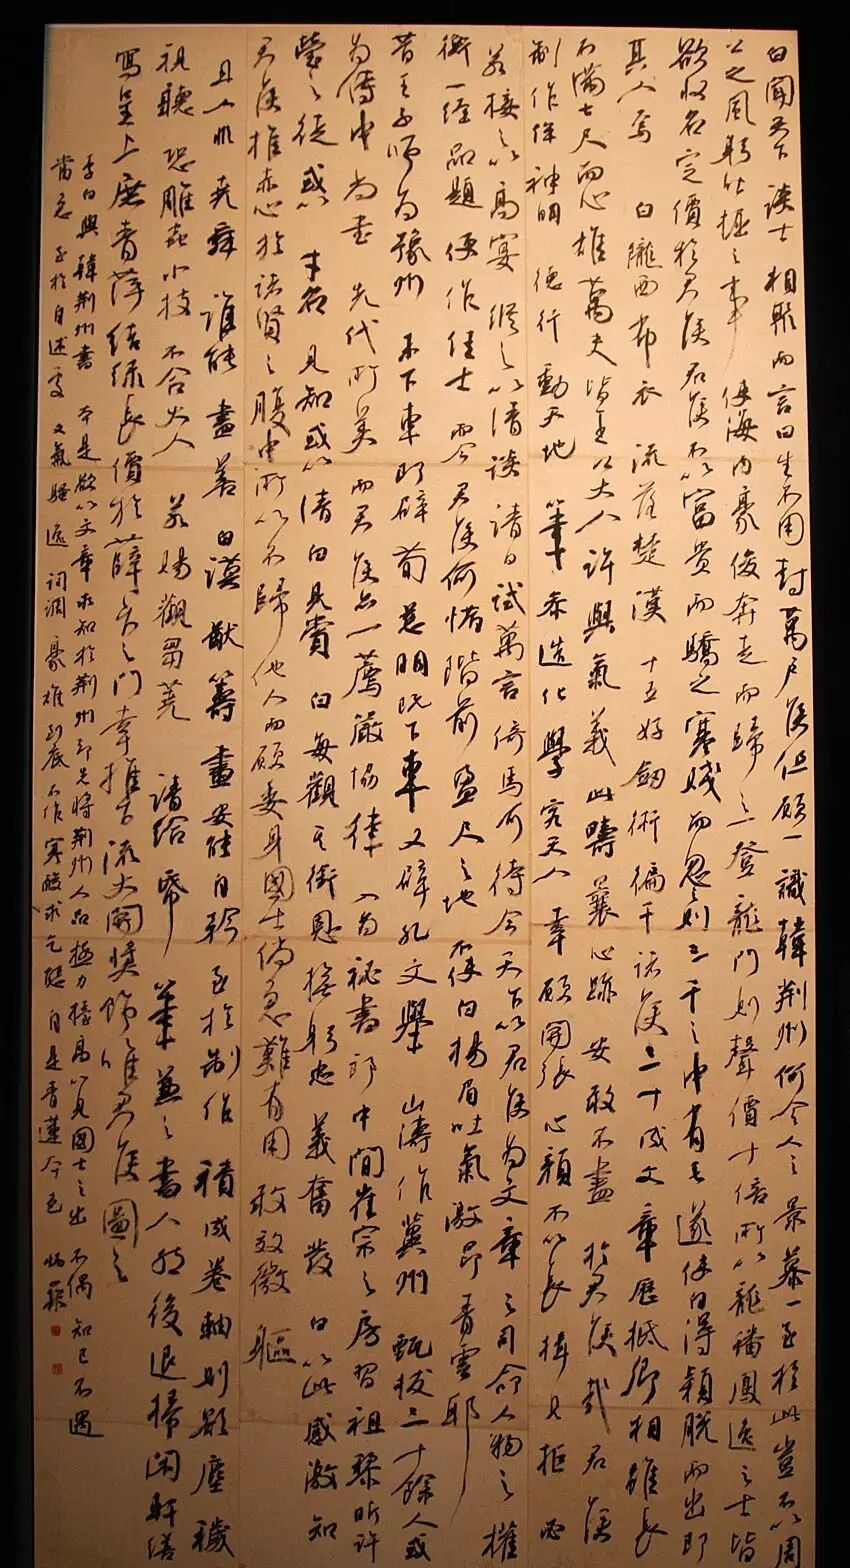 白聞天下談士相聚而言曰生不用封萬戶侯但願一識韓荊州何令人之景慕一至於此豈不以周
公之風躬吐握之事使海內豪俊奔走而歸之一登龍門則聲價十倍所以龍蟠鳳逸之士皆
欲收名定價於君侯君侯不以富貴而驕之寒賤而忽之則三千之中有毛遂使白得穎脫而出即
其人焉白隴西布衣流落楚漢十五好劍術徧干諸侯三十成文章歷抵卿相雖長
不滿七尺而心雄萬夫皆王公大人許與氣義此疇曩心跡安敢不盡於君侯哉君侯
制作侔神明德行動天地筆參造化學究天人幸願開張心顏不以長揖見拒必
若接之以高宴縱之以清談請日試萬言倚馬可待今天下以君侯為文章之司命人物之權
衡一經品題便作佳士而今君侯何惜階前盈尺之地不使白揚眉吐氣激昂青雲耶
昔王子師為豫州未下車即辟荀慈明既下車又辟孔文舉山濤作冀州甄拔三十餘人或
為侍中尚書先代所美而君侯亦一薦嚴協律入為祕書郎中間崔宗之房習祖黎昕許
瑩之徒或以才名見知或以清白見賞白每觀其銜恩撫躬忠義奮發白以此感激知
君侯推赤心於諸賢之腹中所以不歸他人而願委身國士倘急難有用敢效微軀
且人非堯舜誰能盡善白謨猷籌畫安能自矜至於制作積成卷軸則欲塵穢
視聽恐雕蟲小技不合大人若賜觀芻蕘請給帋筆兼之書人然後退掃閑軒繕
寫呈上庶青萍結綠長價於薛卞之門幸推下流大開獎飾惟君侯圖之
李白與韓荊州書本是欲以文章求知於荊州却先將荊州人品極力擡高以見國士之出不偶知己不遇
當急至於自述處文氣騷逸詞調豪雄到底不作寒酸求乞態自是青蓮本色